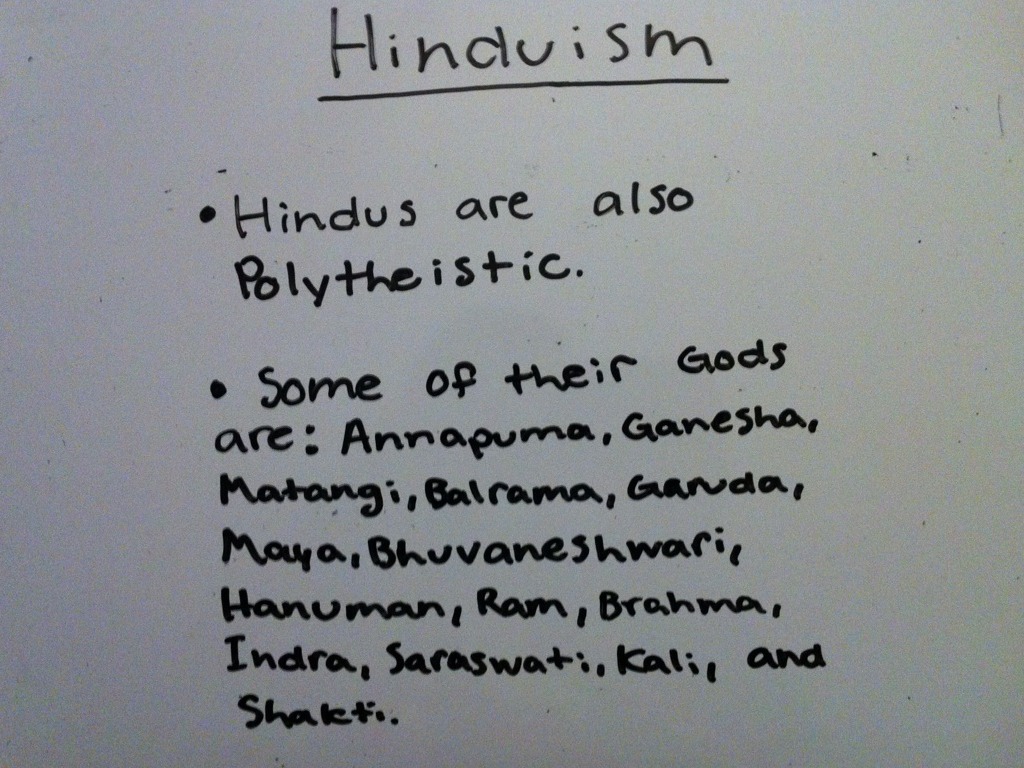 Hinduism
• Hindus are also
Polytheistic.
• Some of their Gods
are: Annapuma, Ganesha,
Matangi, Balrama, Garuda,
Maya, Bhuvaneshwari,
Hanuman, Ram, Brahma,
Indra, Saraswati, Kali, and
Shakti.